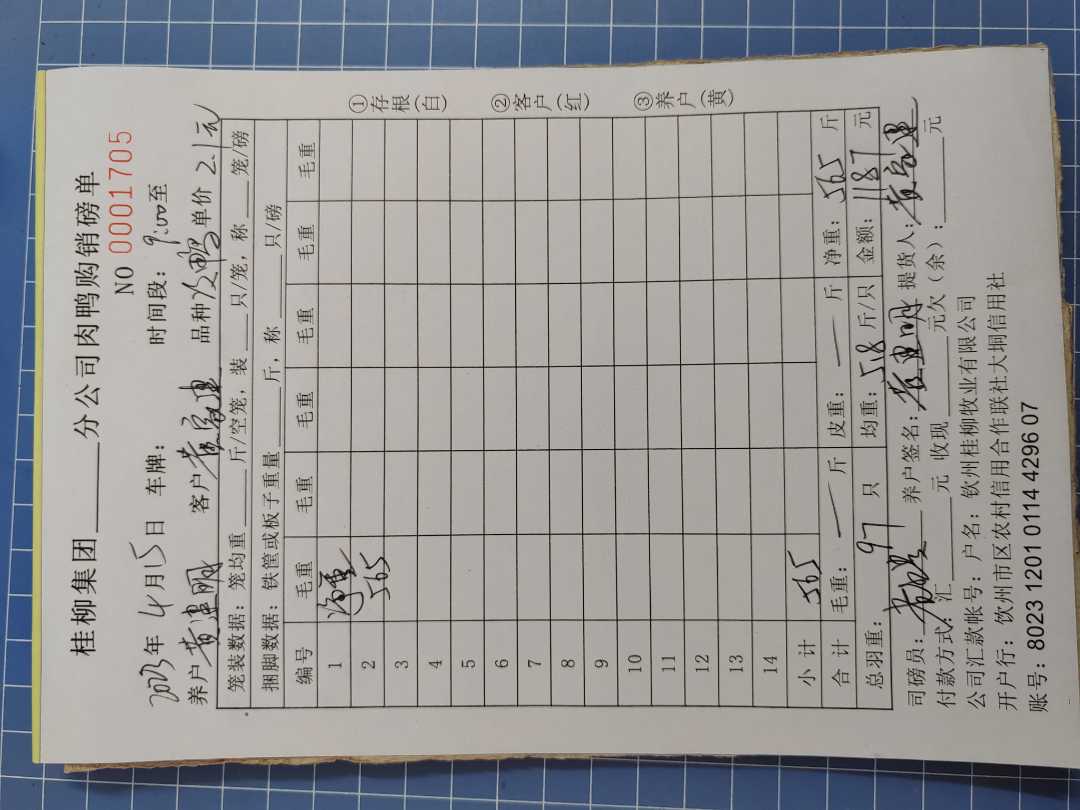 桂柳集团______分公司肉鸭购销磅单
NO 0001705
2023年4月15日 车牌: 时间段: 9:00至
养户黄建明 客户黄家建 品种次鸭 单价2.1元
笼装数据: 笼均重____斤/空笼, 装____只/笼, 称____笼/磅
捆脚数据: 铁筐或板子重量____斤, 称____只/磅
编号 毛重 毛重 毛重 毛重 毛重 毛重
1 净重
2 565
3
4
5
6
7
8
9
10
11
12
13
14
小计 565
合计 毛重: — 斤 皮重: — 斤 净重: 565 斤
总羽重: 97 只 均重: 5.8 斤/只 金额: 1187 元
司磅员: 养户签名: 黄建明 提货人: 黄家建
付款方式: 汇____元 收现____元欠(余):____元
公司汇款帐号: 户名: 钦州桂柳牧业有限公司
开户行: 钦州市区农村信用合作联社大垌信用社
账号: 8023 1201 0114 4296 07
①存根(白) ②客户(红) ③养户(黄)